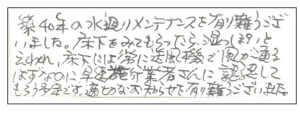 築40年の水廻りメンテナンスを有難うござ
いました。床下をみてもらったら、湿っぽいと
云われ、床下には常に送風機で風が通る
はずなのに早速 業者さんに認認して
もらう予定です。適切なお知らせを有難うございました。